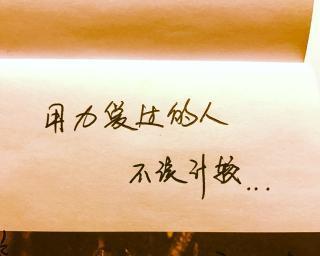 用力爱过的人
不该计较...